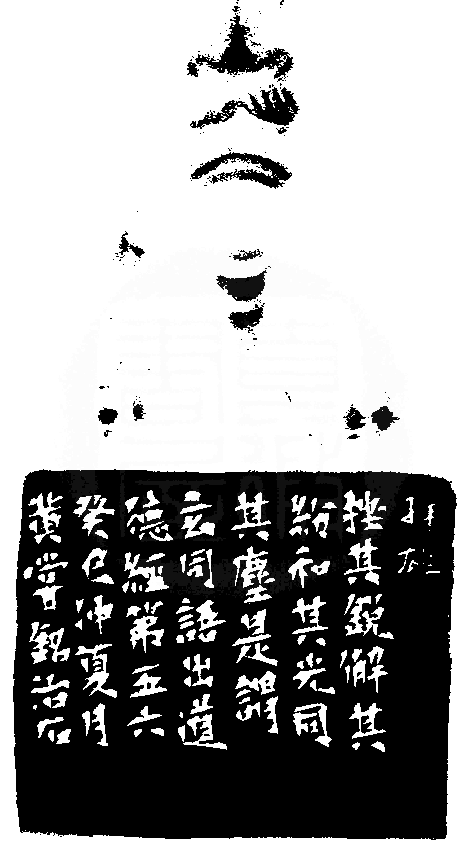 挫其銳解其
紛和其光同
其塵是謂
玄同語出道
德經第五六
癸巳仲夏月
黃嘗銘治石